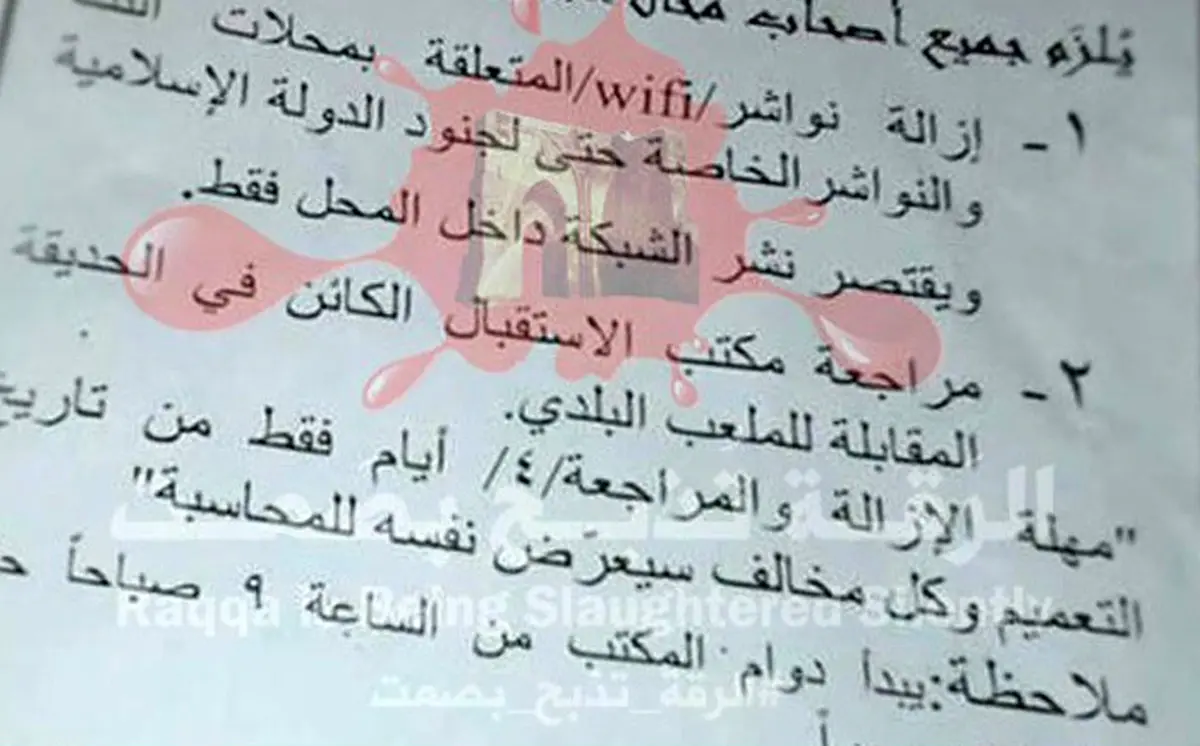 يلزم جميع أصحاب محال
١- إزالة نواشر/wifi/المتعلقة بمحلات
والنواشر الخاصة حتى لجنود الدولة الإسلامية
ويقتصر نشر الشبكة داخل المحل فقط.
٢- مراجعة مكتب الاستقبال الكائن في الحديقة
المقابلة للملعب البلدي.
"مهلة الإزالة والمراجعة/٤/ أيام فقط من تاريخ
التعميم وكل مخالف سيعرّض نفسه للمحاسبة"
ملاحظة:يبدأ دوام المكتب من الساعة ٩ صباحاً
الرقة تذبح بصمت
Raqqa is Being Slaughtered Silently
#الرقة_تذبح_بصمت